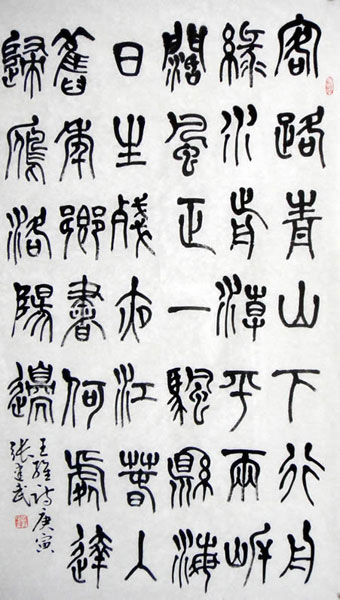 客路青山下行舟
綠水前潮平兩岸
闊風正一颿縣海
日生殘夜江春入
舊年鄉書何處達
歸雁洛陽邊
王湾诗庚寅
张建武